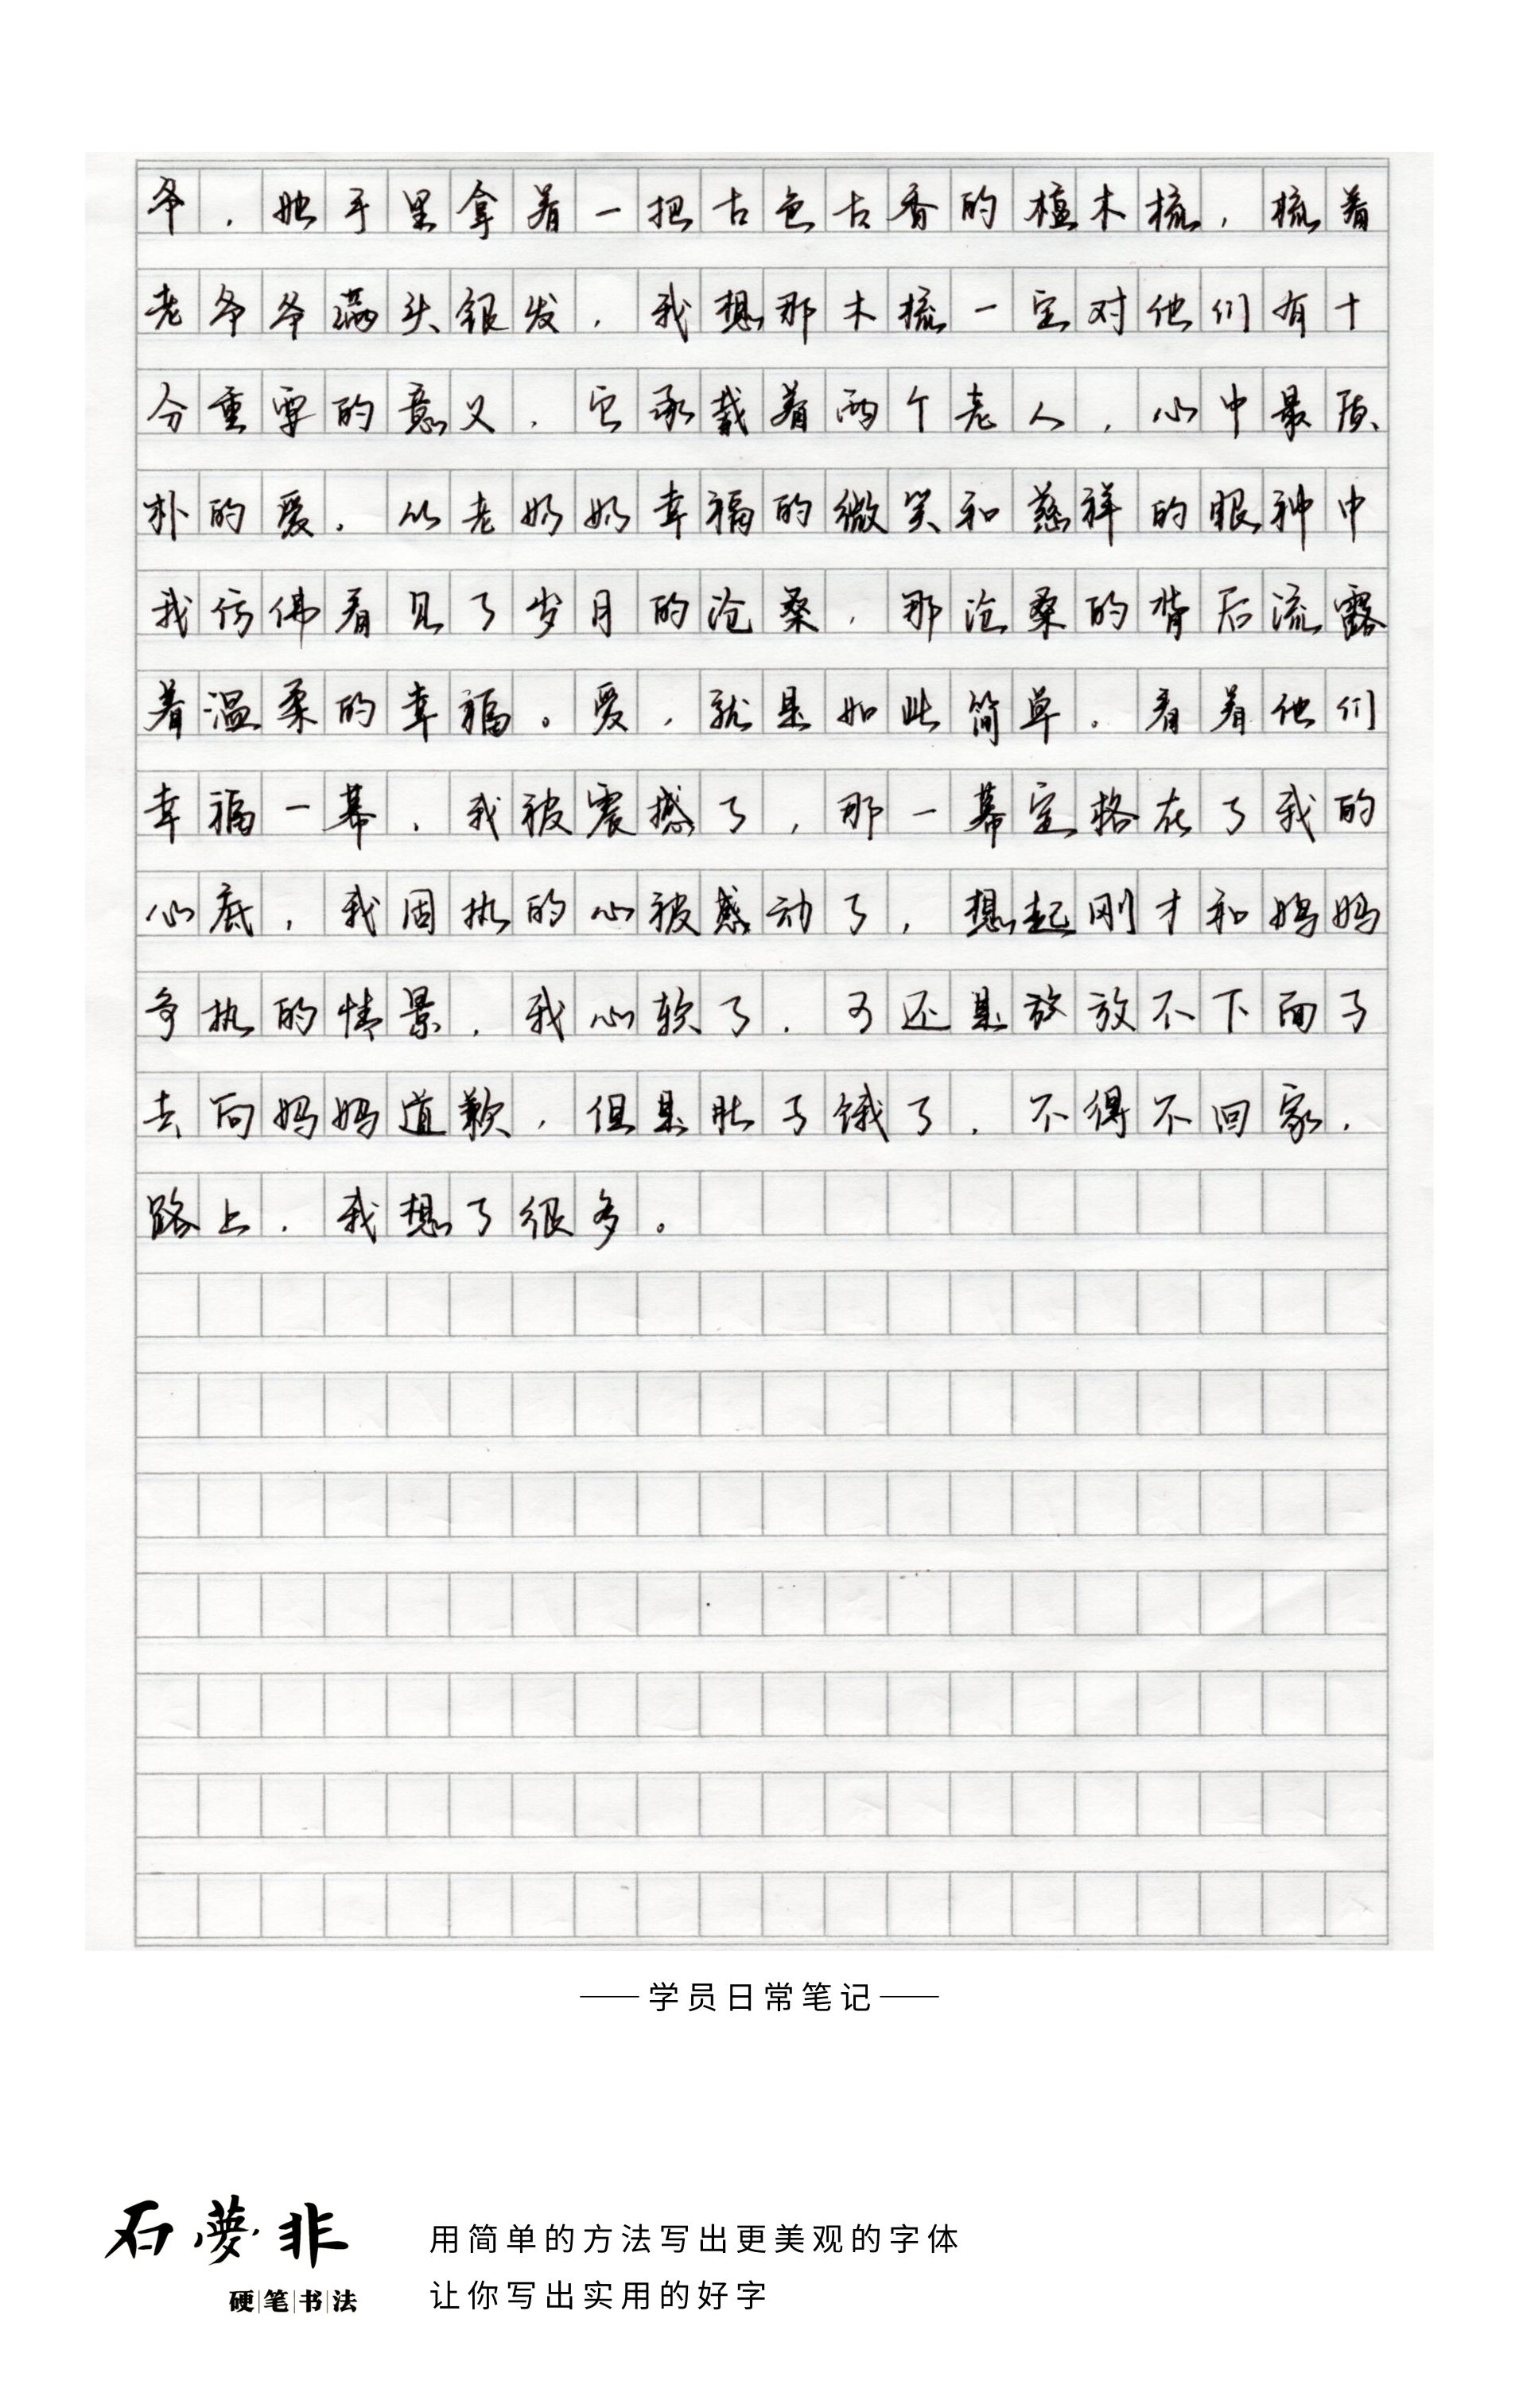 爷，她手里拿着一把古色古香的檀木梳，梳着
老爷爷满头银发，我想那木梳一定对他们有十
分重要的意义，它承载着两个老人，心中最质
朴的爱，从老奶奶幸福的微笑和慈祥的眼神中
我仿佛看见了岁月的沧桑，那沧桑的背后流露
着温柔的幸福。爱，就是如此简单。看着他们
幸福一幕，我被震撼了，那一幕定格在了我的
心底，我固执的心被感动了，想起刚才和妈妈
争执的情景，我心软了，可还是放放不下面子
去向妈妈道歉，但是肚子饿了，不得不回家，
路上，我想了很多。
——学员日常笔记——
石夢非
硬笔书法
用简单的方法写出更美观的字体
让你写出实用的好字